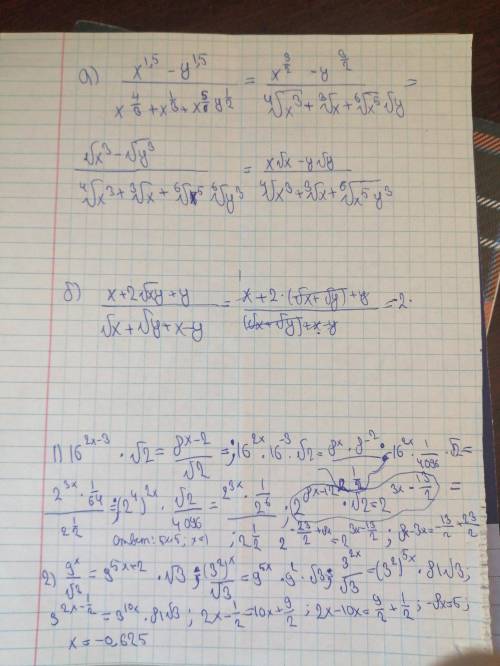 а) (x^{1,5} - y^{1,5}) / (x^{4/6} + x^{1/3} + x^{5/6} y^{1/2}) = (x^{3/2} - y^{3/2}) / (∜x³ + ∛x + ⁶√x⁵ √y) =
(√x³ - √y³) / (∜x³ + ∛x + ⁶√x⁵ ⁶√y³) = (x√x - y√y) / (∜x³ + ∛x + ⁶√x⁵ y³)
б) (x + 2√xy + y) / (√x + √y + x - y) = (x + 2·(√x + √y) + y) / ((√x + √y) + x - y) = 2·
1) 16^{2x-3} · √2 = (8^{x-2}) / √2 =; 16^{2x} · 16^{-3} √2 = 8^x · 8^{-2} ; 16^{2x} · 1/4096 · √2 =
(2^{3x} · 1/64) / 2^{1/2} ; (2^4)^{2x} · √2/4096 = (2^{3x} · 1/2^6) / 2^{1/2} ; 2^{8x-12} · √2 = 2^{3x - 13/2} =
ответ: x=1 ; 2^{-23/2 + 8x} = 2^{3x - 13/2} ; 8x - 3x = -13/2 + 23/2
2) 9^x / √3 = 9^{5x+2} · √3 ; (3²)^x / √3 = 9^{5x} · 9² · √3 ; 3^{2x} / √3 = (3²)^{5x} · 81√3 ;
3^{2x - 1/2} = 3^{10x} · 81√3 ; 2x - 1/2 = 10x + 9/2 ; 2x - 10x = 9/2 + 1/2 ; -8x = 5 ;
x = -0,625